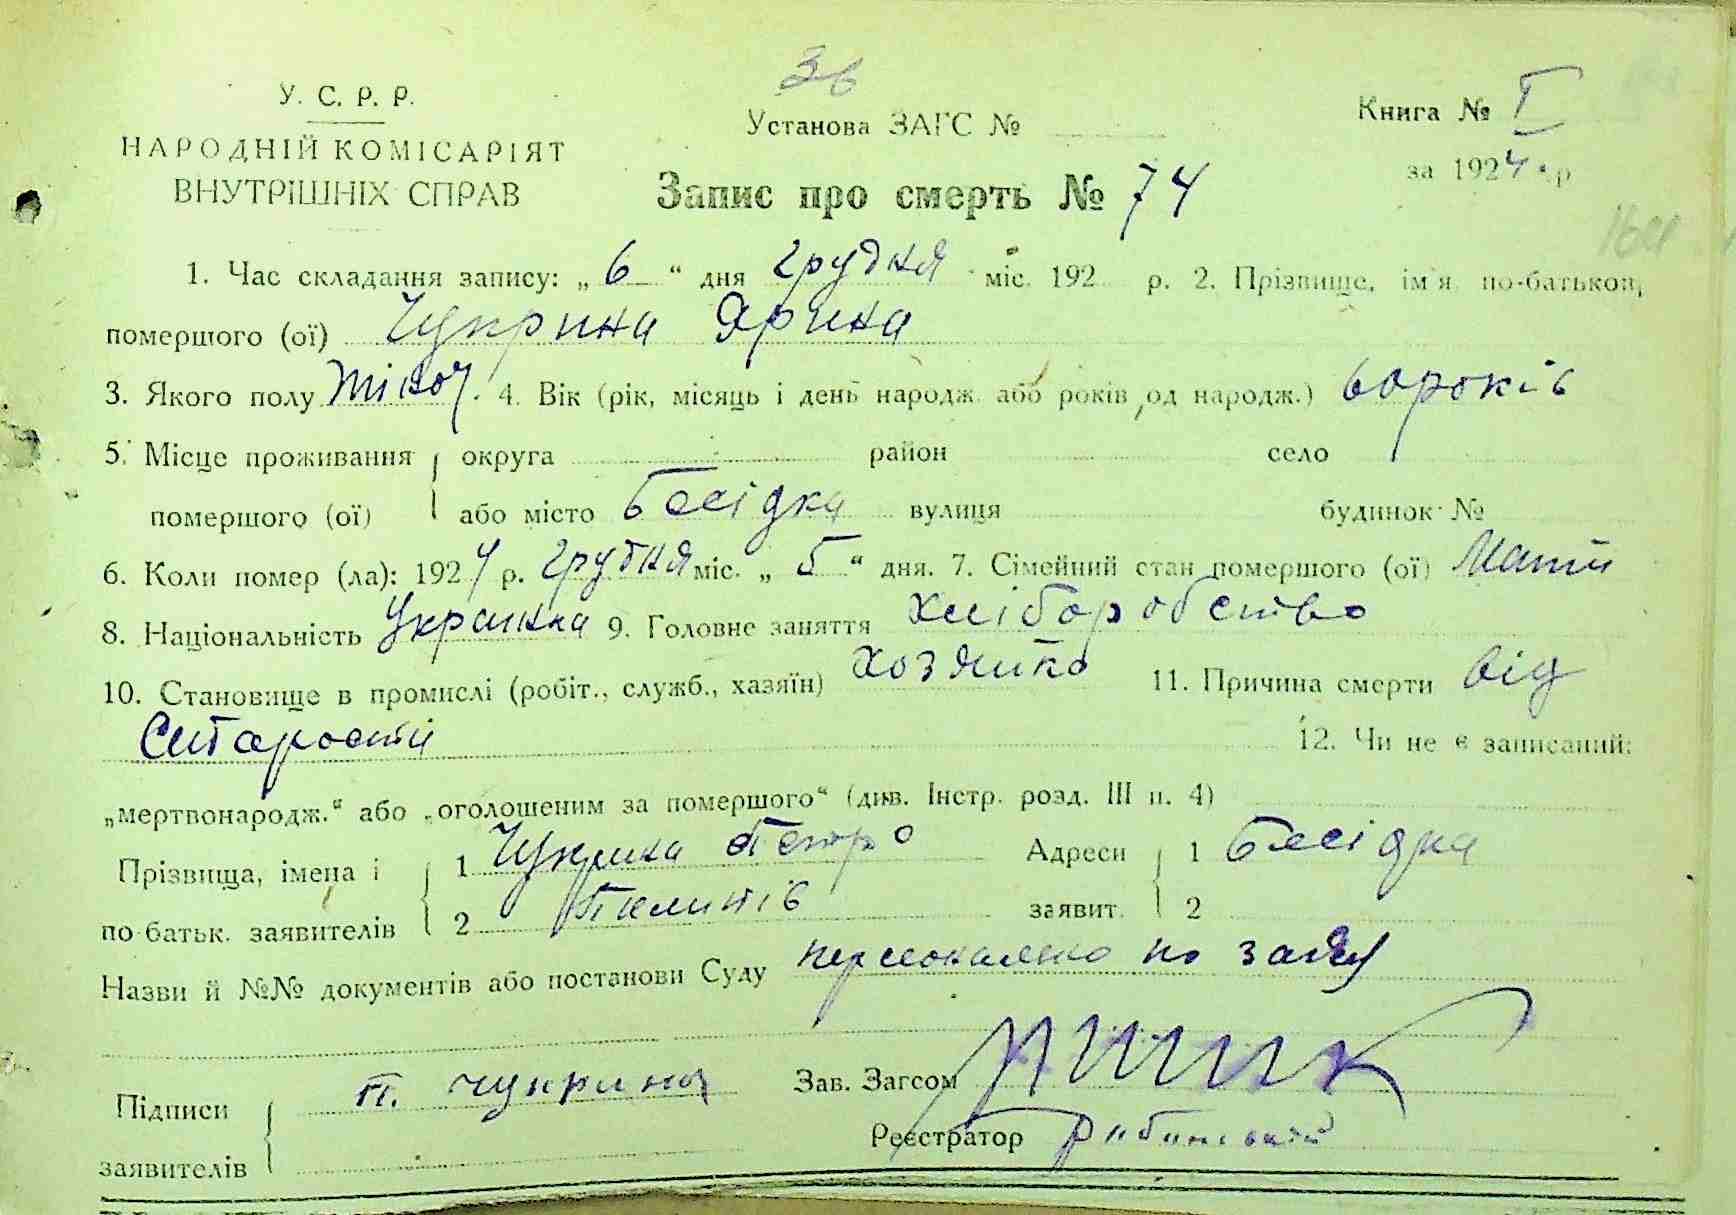 Зв
У. С. Р. Р.
НАРОДНІЙ КОМІСАРІЯТ
ВНУТРІШНІХ СПРАВ
Установа ЗАГС №
Книга № I
за 1924 р
Запис про смерть № 74
1. Час складання запису: „ 6 “ дня грудня міс. 192 р. 2. Прізвище, ім'я, по-батькові,
помершого (ої) Чуприна Ярина
3. Якого полу жіноч. 4. Вік (рік, місяць і день народж. або років од народж.) 60 років
5. Місце проживання округа район село
помершого (ої) або місто Бесідка вулиця будинок №
6. Коли помер (ла): 1924 р. грудня міс. „ 5 “ дня. 7. Сімейний стан помершого (ої) Мати
8. Національність Украинка 9. Головне заняття хліборобство
10. Становище в промислі (робіт., служб., хазяїн) хозяйка 11. Причина смерти від
старости 12. Чи не є записаний:
„мертвонародж.“ або „оголошеним за помершого“ (див. Інстр. розд. III п. 4)
Прізвища, імена і 1 Чуприна Петро Адреси 1 Бесідка
по батьк. заявителів 2 заявит. 2
Назви й №№ документів або постанови Суду персонально по
Підписи п. чуприна Зав. Загсом
заявителів Реєстратор